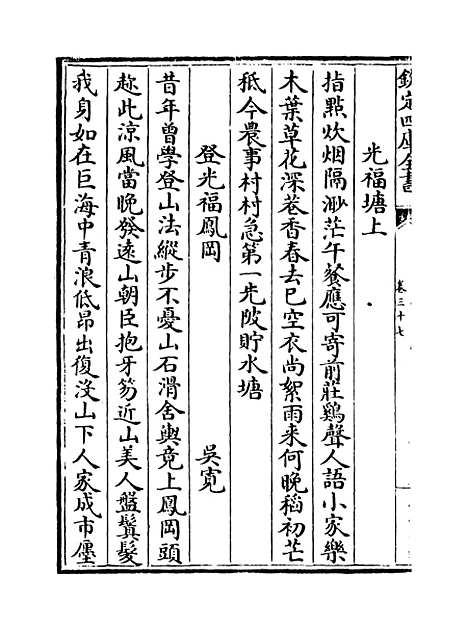 欽定四庫全書
卷三十七
光福塘上
指點炊烟隔渺茫午餐應可寄前莊鷄聲人語小家樂
木葉草花深巷香春去已空衣尚絮雨来何晚稻初芒
秪今農事村村急第一先陂貯水塘
登光福鳳岡
吳寛
昔年曽學登山法縱步不憂山石滑舍輿竟上鳳岡頭
趂此凉風當晚發遠山朝臣抱牙笏近山美人盤鬒髮
我身如在巨海中青浪低昂出復没山下人家成市㕓